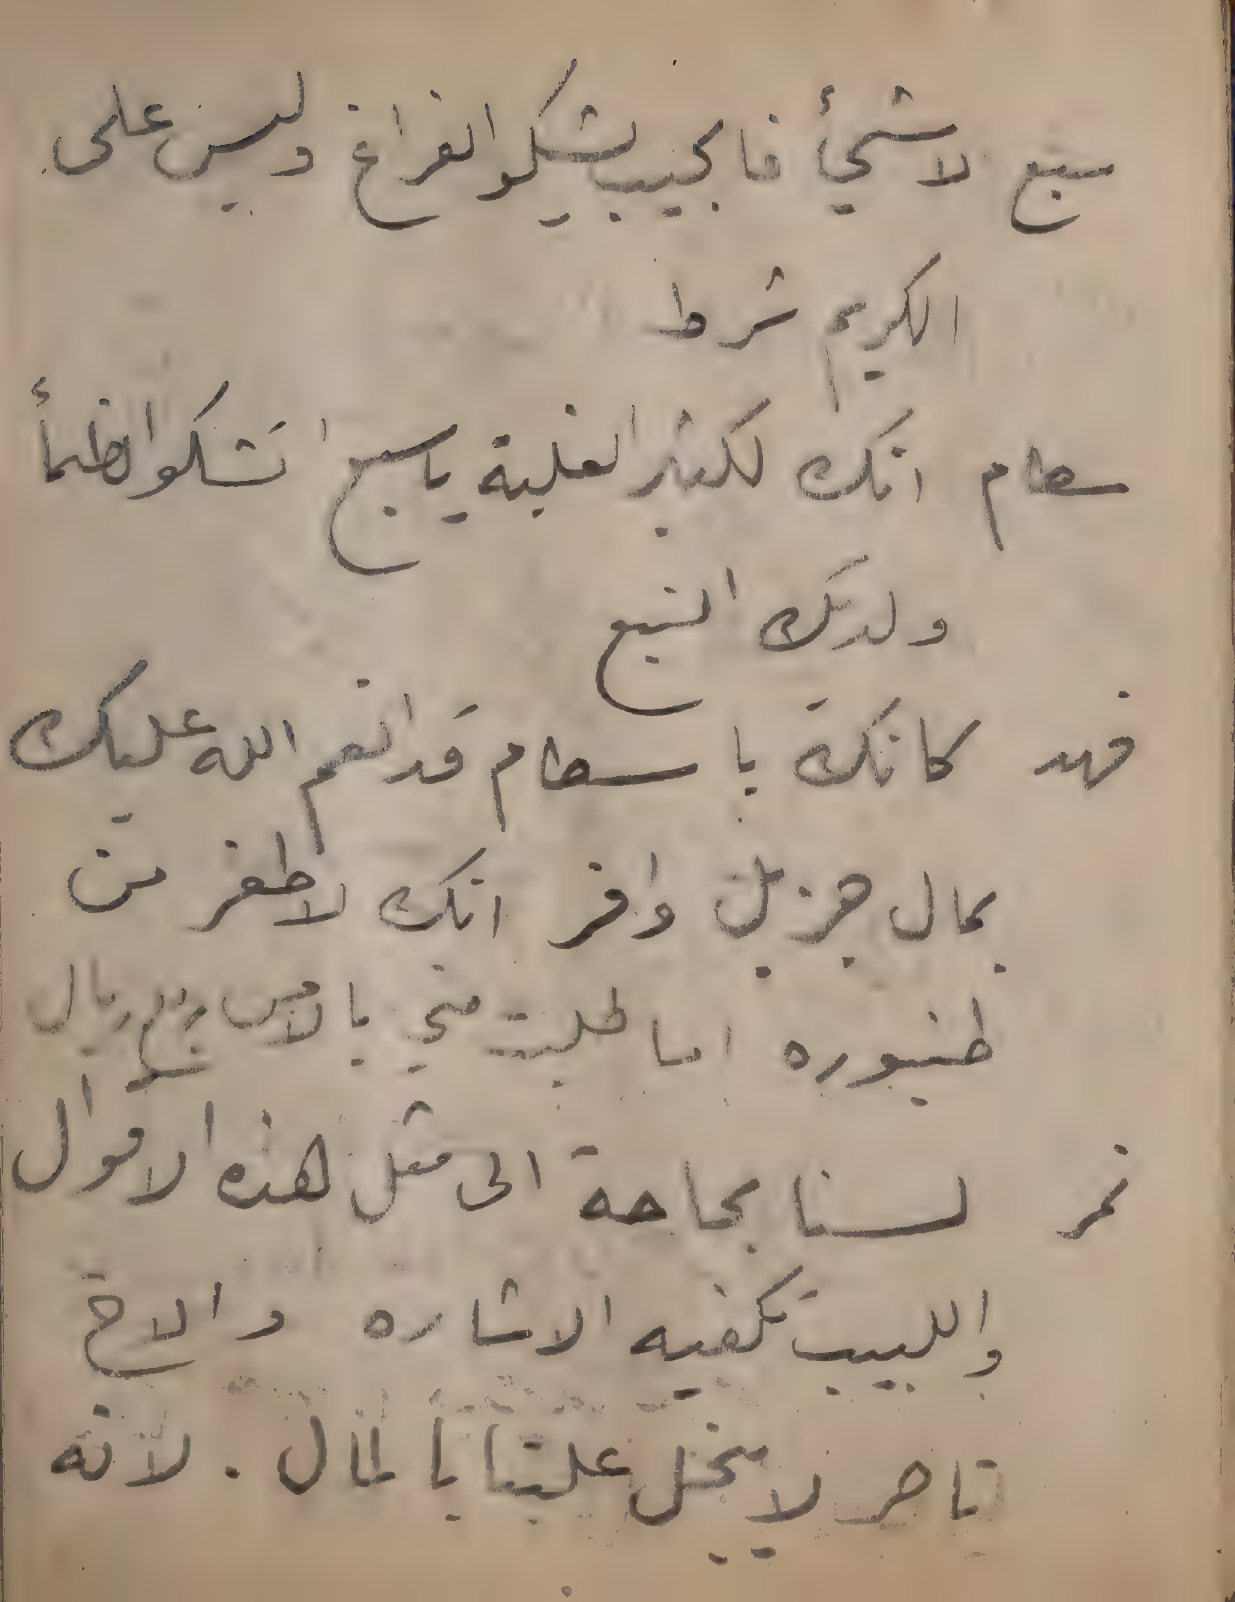 سبع لا شيئ فالجيب يشكوا الفراغ وليس على
الكريم شرط
سطام انك لكثير الغلبة يا سبع اتشكوا الظمأ
ولديك النبع
فهد كانك يا سطام قد انعم الله عليك
بمال جزيل وافر انك لاطفر من
طنبوره اما طلبت مني بالامس ربع ريال
نمر لسنا بحاجة الى مثل هذه الاقوال
واللبيب تكفيه الاشاره والاخ
تاجر لا يبخل علينا بالمال . لانه